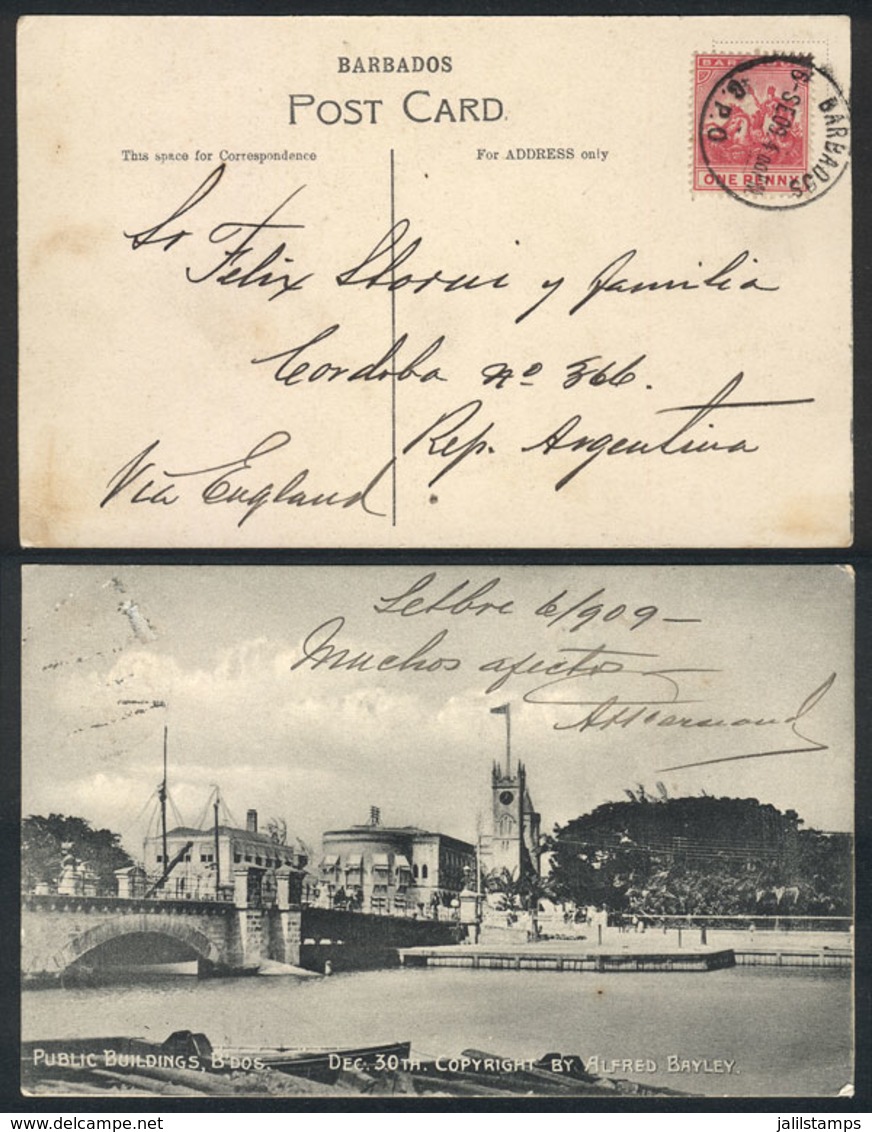 BARBADOS
POST CARD.
This space for Correspondence
For ADDRESS only
BARBADOS
ONE PENNY
BARBADOS
G.P.O
Sr
Felix Storni y familia
Cordoba nº 366.
Rep. Argentina
Via England
Setbre 6/909-
Muchos afectos
PUBLIC BUILDINGS, B'DOS. DEC. 30TH. COPYRIGHT BY ALFRED BAYLEY.
Delcampe.net
jalilstamps